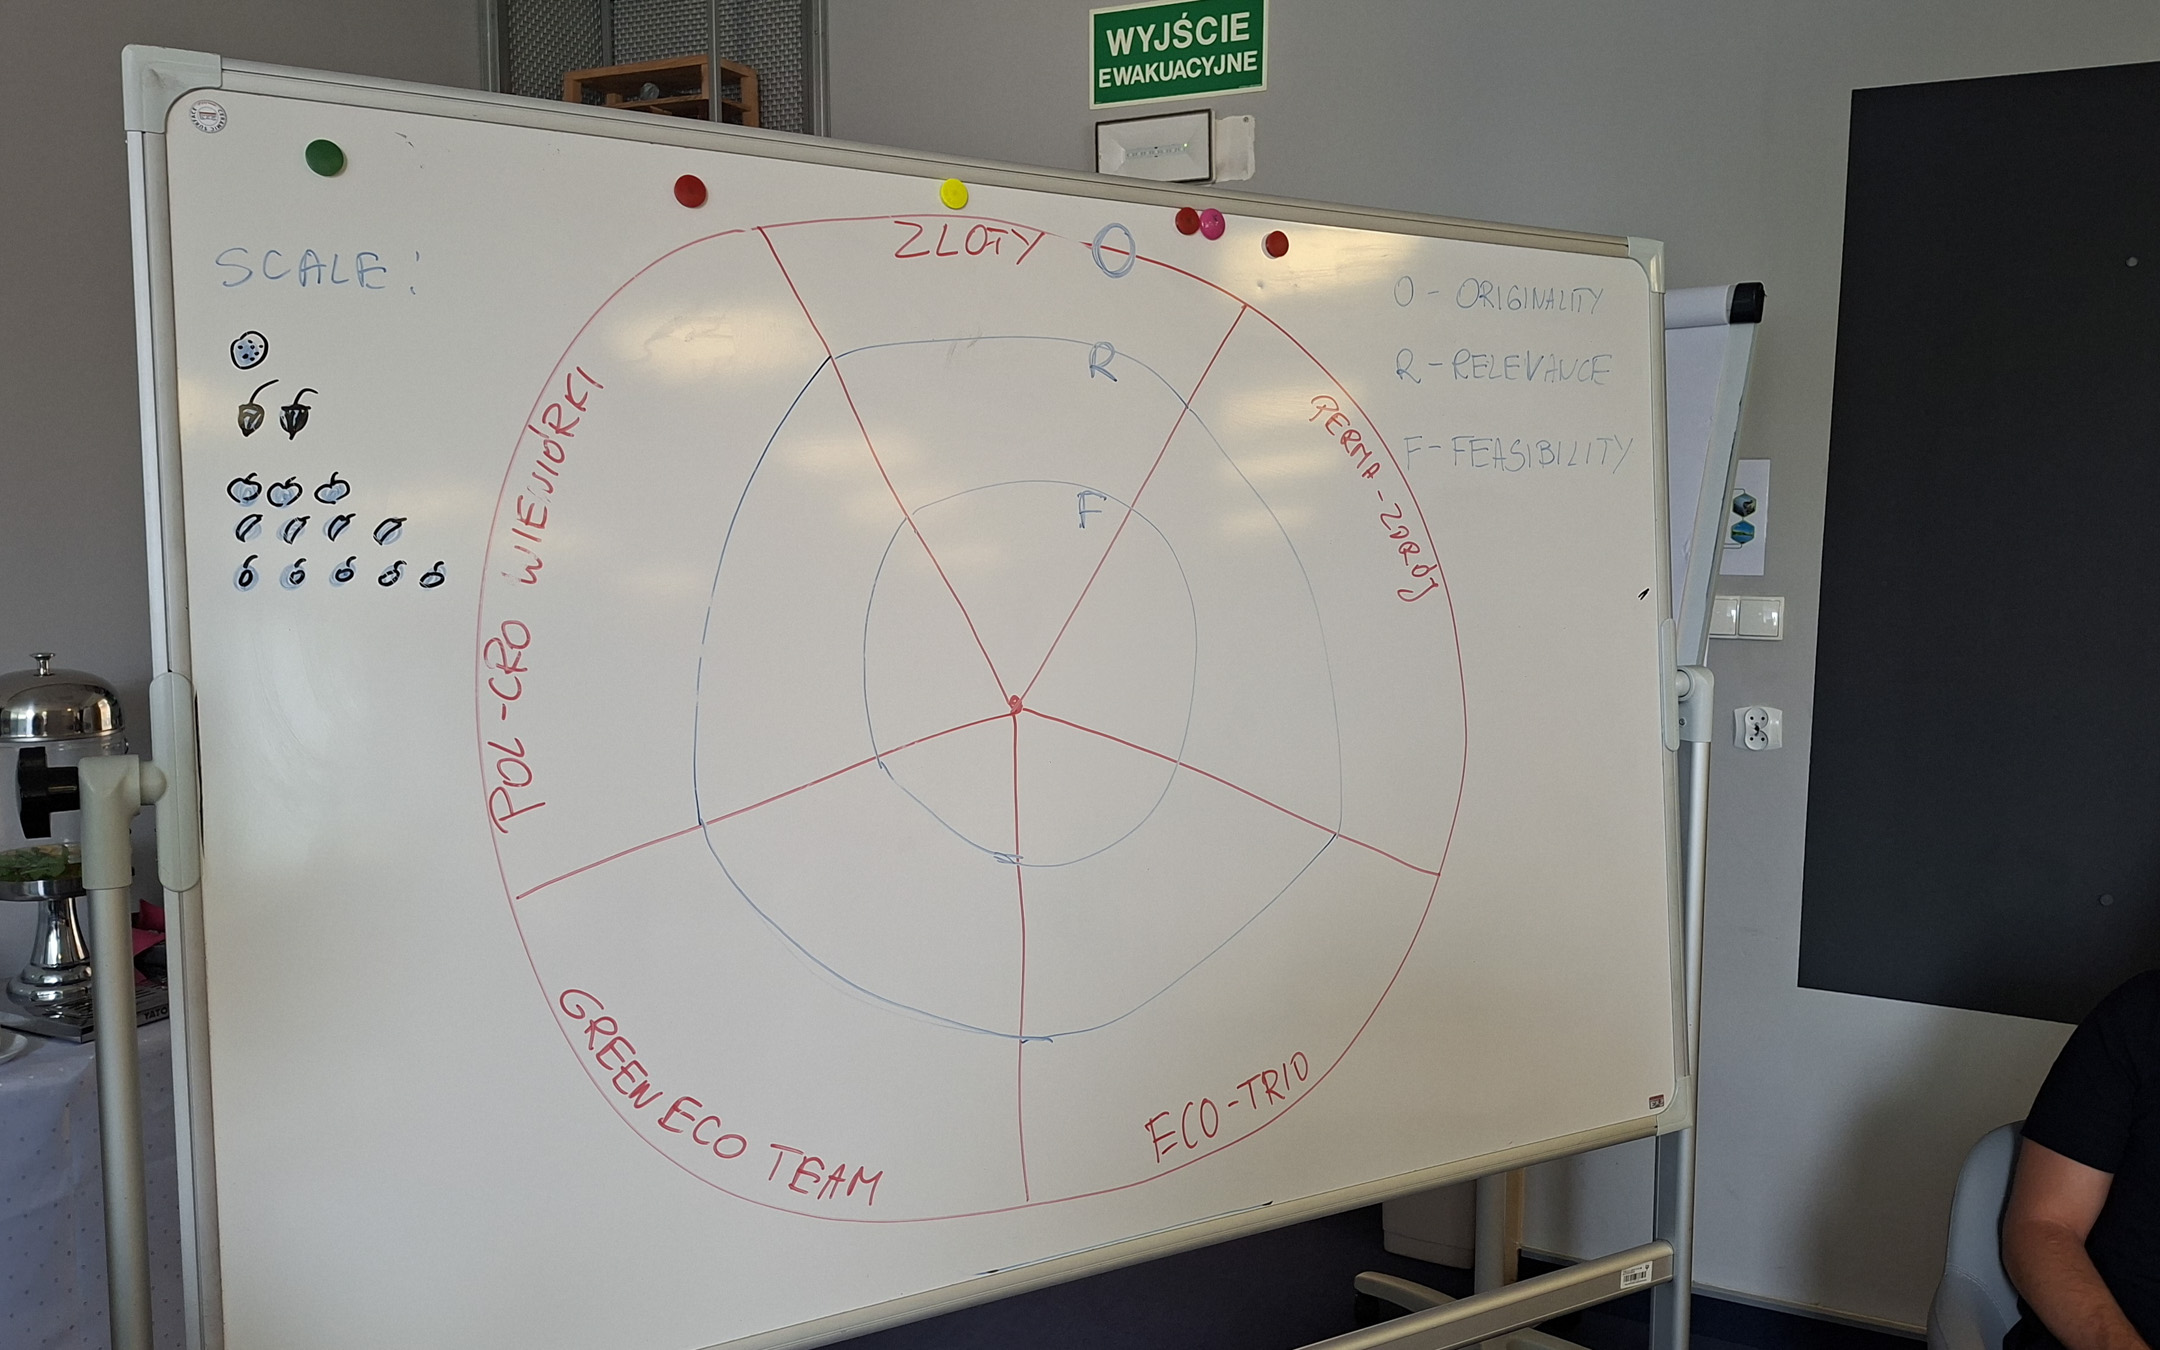 WYJŚCIE
EWAKUACYJNE
SCALE:
ZLOTY
O
R
F
O - ORIGINALITY
R - RELEVANCE
F - FEASIBILITY
PERMA-ZDRÓJ
POL-CRO WIEWIÓRKI
GREEN ECO TEAM
ECO-TRIO
YATO